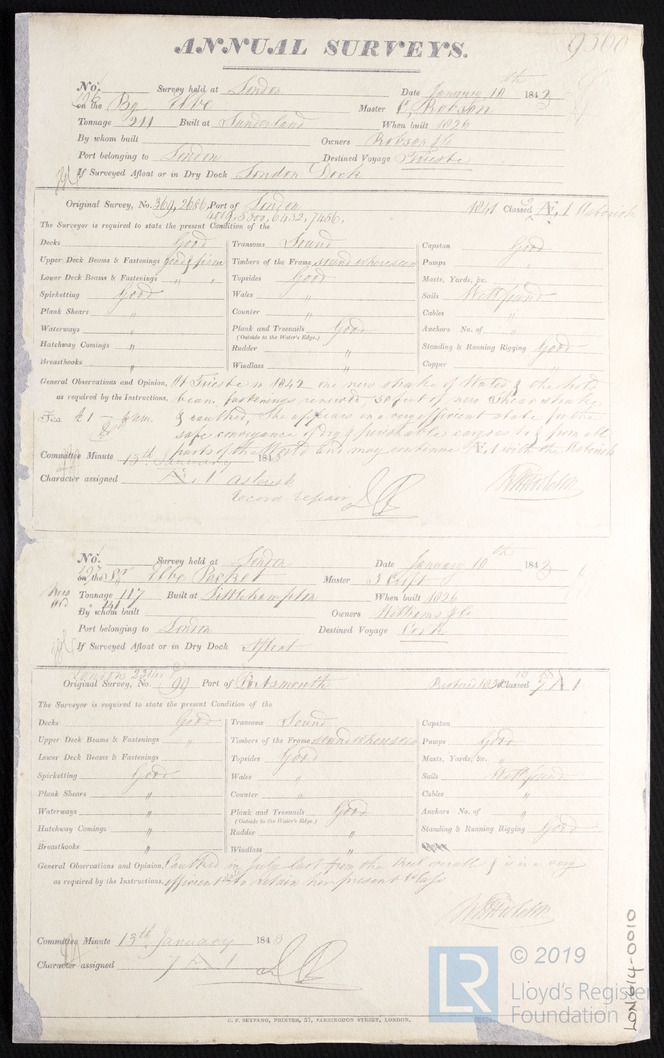 ANNUAL SURVEYS.
9300
No. Survey held at London Date January 10th 1843
on the Bg Master C. Robson
Tonnage 211 Built at Sunderland When built 1826
By whom built Owners Robson & Co
Port belonging to London Destined Voyage Trieste
If Surveyed Afloat or in Dry Dock London Dock
Original Survey, No. 369, 2686, Port of London 1841 Classed Æ 1 Asterisk
5300, 6432, 7456,
The Surveyor is required to state the present Condition of the
Decks Good Transoms Sound Capstan Good
Upper Deck Beams & Fastenings Good & firm Timbers of the Frame sound where seen Pumps "
Lower Deck Beams & Fastenings " " Topsides Good Masts, Yards, &c. "
Spirketting Good Wales " Sails Well found
Plank Shears " Counter " Cables "
Waterways " Plank and Treenails Good Anchors No. of "
(Outside to the Water's Edge.)
Hatchway Comings " Rudder " Standing & Running Rigging Good
Breasthooks " Windlass " Copper "
General Observations and Opinion, At Trieste in 1842 one new strake of Wales & the hold
as required by the Instructions. beam fastenings renewed, 50 feet of new Sheer strakes
Fee £1 & caulked, She appears in a very efficient state for the
safe conveyance of dry & perishable cargoes to & from all
parts of the World and may continue Æ 1 with the Asterisk
Committee Minute 13th January 1843
Character assigned Æ 1 Asterisk
record repair
No. 197 Survey held at London Date January 10th 1843
on the Sr Packet Master
Tonnage 117 Built at Littlehampton When built 1826
141
By whom built Owners Williams & Co
Port belonging to London Destined Voyage Cork
If Surveyed Afloat or in Dry Dock Afloat
Original Survey, No. 99 Port of Portsmouth Restored 1838 Classed 7 Æ 1
The Surveyor is required to state the present Condition of the
Decks Good Transoms Sound Capstan
Upper Deck Beams & Fastenings " Timbers of the Frame sound where seen Pumps Good
Lower Deck Beams & Fastenings Topsides Good Masts, Yards, &c. "
Spirketting Good Wales " Sails Well found
Plank Shears " Counter " Cables "
Waterways " Plank and Treenails Good Anchors No. of "
(Outside to the Water's Edge.)
Hatchway Comings " Rudder " Standing & Running Rigging Good
Breasthooks " Windlass "
General Observations and Opinion, Caulked in July last from the keel overall & is in a very
as required by the Instructions. efficient state to retain her present Class
Committee Minute 13th January 1843
Character assigned 7 Æ 1
C. F. SEYFANG, PRINTER, 57, FARRINGDON STREET, LONDON.
LR © 2019
Lloyd's Register
Foundation
LON614-0010